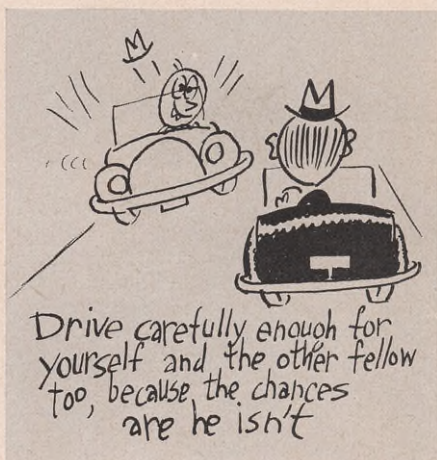 Drive carefully enough for
yourself and the other fellow
too, because the chances
are he isn't